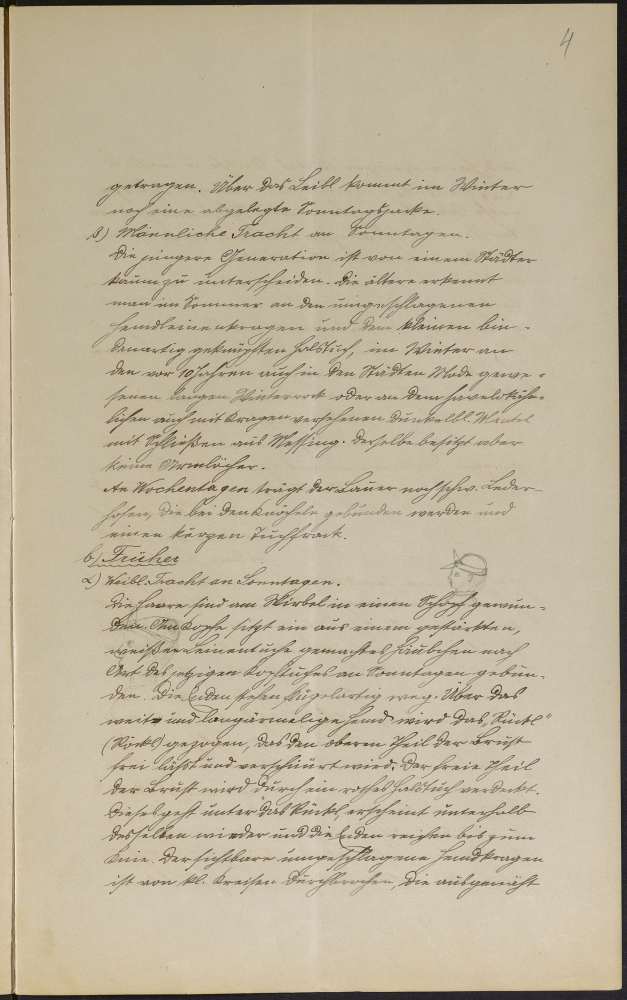 4
getragen. Über das Leibl kommt im Winter
noch eine abgelegte Sonntagsjacke.
β) Männliche Tracht an Sonntagen.
Die jüngere Generation ist von einem Städter
kaum zu unterscheiden. Die ältere erkennt
man im Sommer an den umgeschlagenen
Hemdleinenkragen und dem kleinen bin-
denartig geknüpften Halstuch, im Winter an
den vor 10 Jahren auch in den Städten Mode gewe-
senen langen Winterrock oder an dem havelockähn-
lichen auch mit Kragen versehenen dunkelbl. Mantel
mit Schließen aus Messing. Derselbe besitzt aber
keine Armlöcher.
An Wochentagen trägt der Bauer noch schw. Leder-
hosen, die bei den Knöcheln gebunden werden und
einen kurzen Tuchfrack.
b) Früher
α) Weibl. Tracht an Sonntagen.
Die Haare sind am Wirbel in einen Schopf gewun-
den. Am Kopfe sitzt ein aus einem gestärkten,
weißen Leinentuche gemachtes Häubchen nach
Art des jetzigen Kopftuches an Sonntagen gebun-
den. Die Enden stehen flügelartig weg. Über das
weite und langärmelige Hemd wird das "Rückl"
(Röckl) gezogen, das den oberen Theil der Brust
frei läßt und verschnürt wird. Der freie Theil
der Brust wird durch ein rothes Halstuch verdeckt.
Dieses geht unter das Rückl, erscheint unterhalb
desselben wieder und die Enden reichen bis zum
Knie. Der sichtbare umgeschlagene Hemdkragen
ist von kl. Kreisen durchbrochen, die ausgenäht